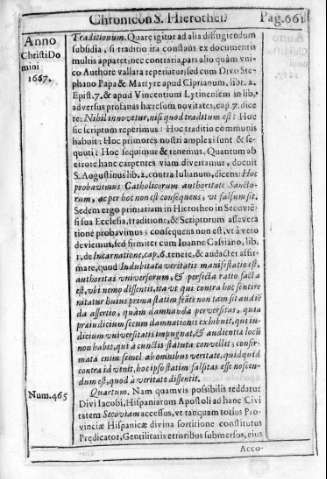 Chronicon S. Hierothei Pag. 661
Anno
Christi Do
mini
1667.
Traditionum. Quare igitur ad alia distinguendum
subsidia, si traditio ita constans ex documentis
multis apparet; nec contraria, pars alio quàm vni-
co Authore vallata reperiatur; sed cum Divo Ste-
phano Papa & Martyre apud Ciprianum, lib. 2.
Epist. 7. & apud Vincentium Lyrinensem in lib.
adversus profanas hæresum novitates, cap. 7. dice
re: Nihil innovetur, nisi quod traditum est: Hoc
sic scriptum reperimus: Hoc traditio communis
habuit: Hoc primores nostri amplexi sunt & se-
quuti: Hoc sequimur & tenemus. Quantum ab
errore hanc carpentes viam divertamus, docuit
S. Augustinus lib. 2. contra Iulianum, dicens: Hoc
probavimus Catholicorum authoritate Sancto-
rum, ac per hoc non est consequens, vt falsum sit.
Sedem ergo primariam in Hierotheo in Segovie-
si sua Ecclesia, traditione, & Scriptorum assevera
tione probavimus: consequens non est, vt à vero
deviemus, sed firmiter cum Ioanne Cassiano, lib.
1. de Incarnatione, cap. 6. tenere, & audacter affir-
mare, quod Indubitata veritatis manifestatio est,
authoritas universorum, & perfecta ratio facta
est, vbi nemo dissentit, ita vt qui contra hoc sentire
nitatur huius prima statim fronte non tam sit audiẽ
da assertio, quàm damnanda perversitas, quia
præiudicium secum damnationis exhibuit, qui iu-
dicium vniversitatis impugnat, & audientiæ locũ
non habet, qui à cunctis statuta convellit; confir-
mata enim semel ab omnibus veritate, quidquid
contra id venit, hoc ipso statim falsitas esse noscen-
dum est, quod à veritate dissentit.
Num. 465
Quartum. Nam quamvis possibilis reddatur
Divi Iacobi, Hispaniarum Apostoli ad hanc Civi
tatem Segoviam accessus, vt tanquam totius Pro-
vinciæ Hispanicæ divina sortitione constitutus
Prędicator, Gentilitatis erroribus submersos, eius
Acco-